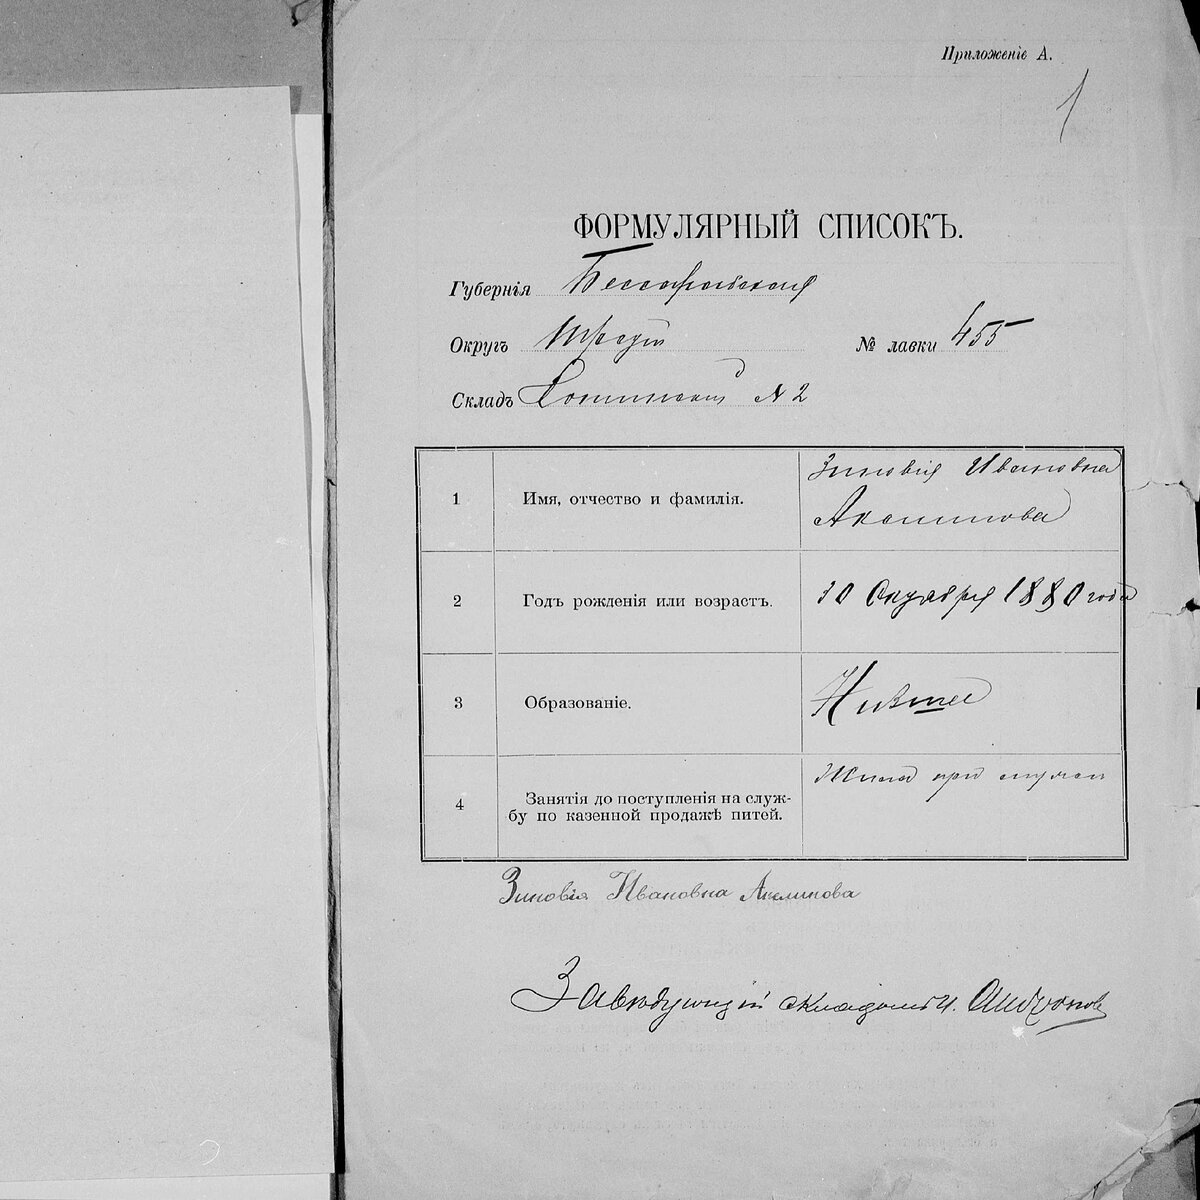 Приложеніе А.
1
ФОРМУЛЯРНЫЙ СПИСОКЪ.
Губернія Бессарабская
Округъ Третій
№ лавки 455
Складъ Хотинскій № 2
1 Имя, отчество и фамилія. Зиновія Ивановна
Акелинова
2 Годъ рожденія или возрастъ. 30 Октября 1880 года
3 Образованіе. Низшее
4 Занятія до поступленія на служ-
бу по казенной продажѣ питей. Жила при
Зиновія Ивановна Акелинова
Завѣдующій складомъ И.